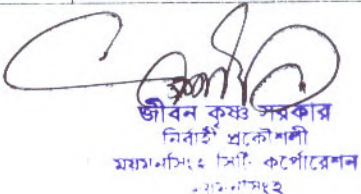 জীবন কৃষ্ণ সরকার
নির্বাহী প্রকৌশলী
ময়মনসিংহ সিটি কর্পোরেশন
ময়মনসিংহ